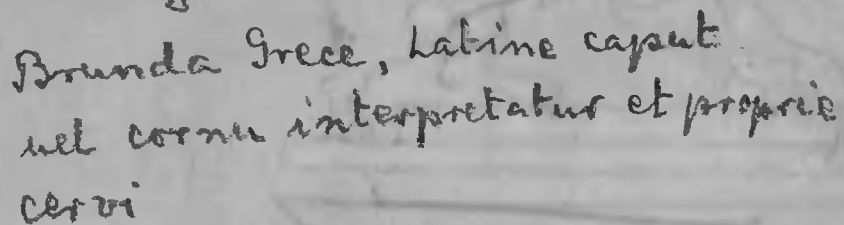 Brunda Grece, Latine caput
uel cornu interpretatur et proprie
cervi